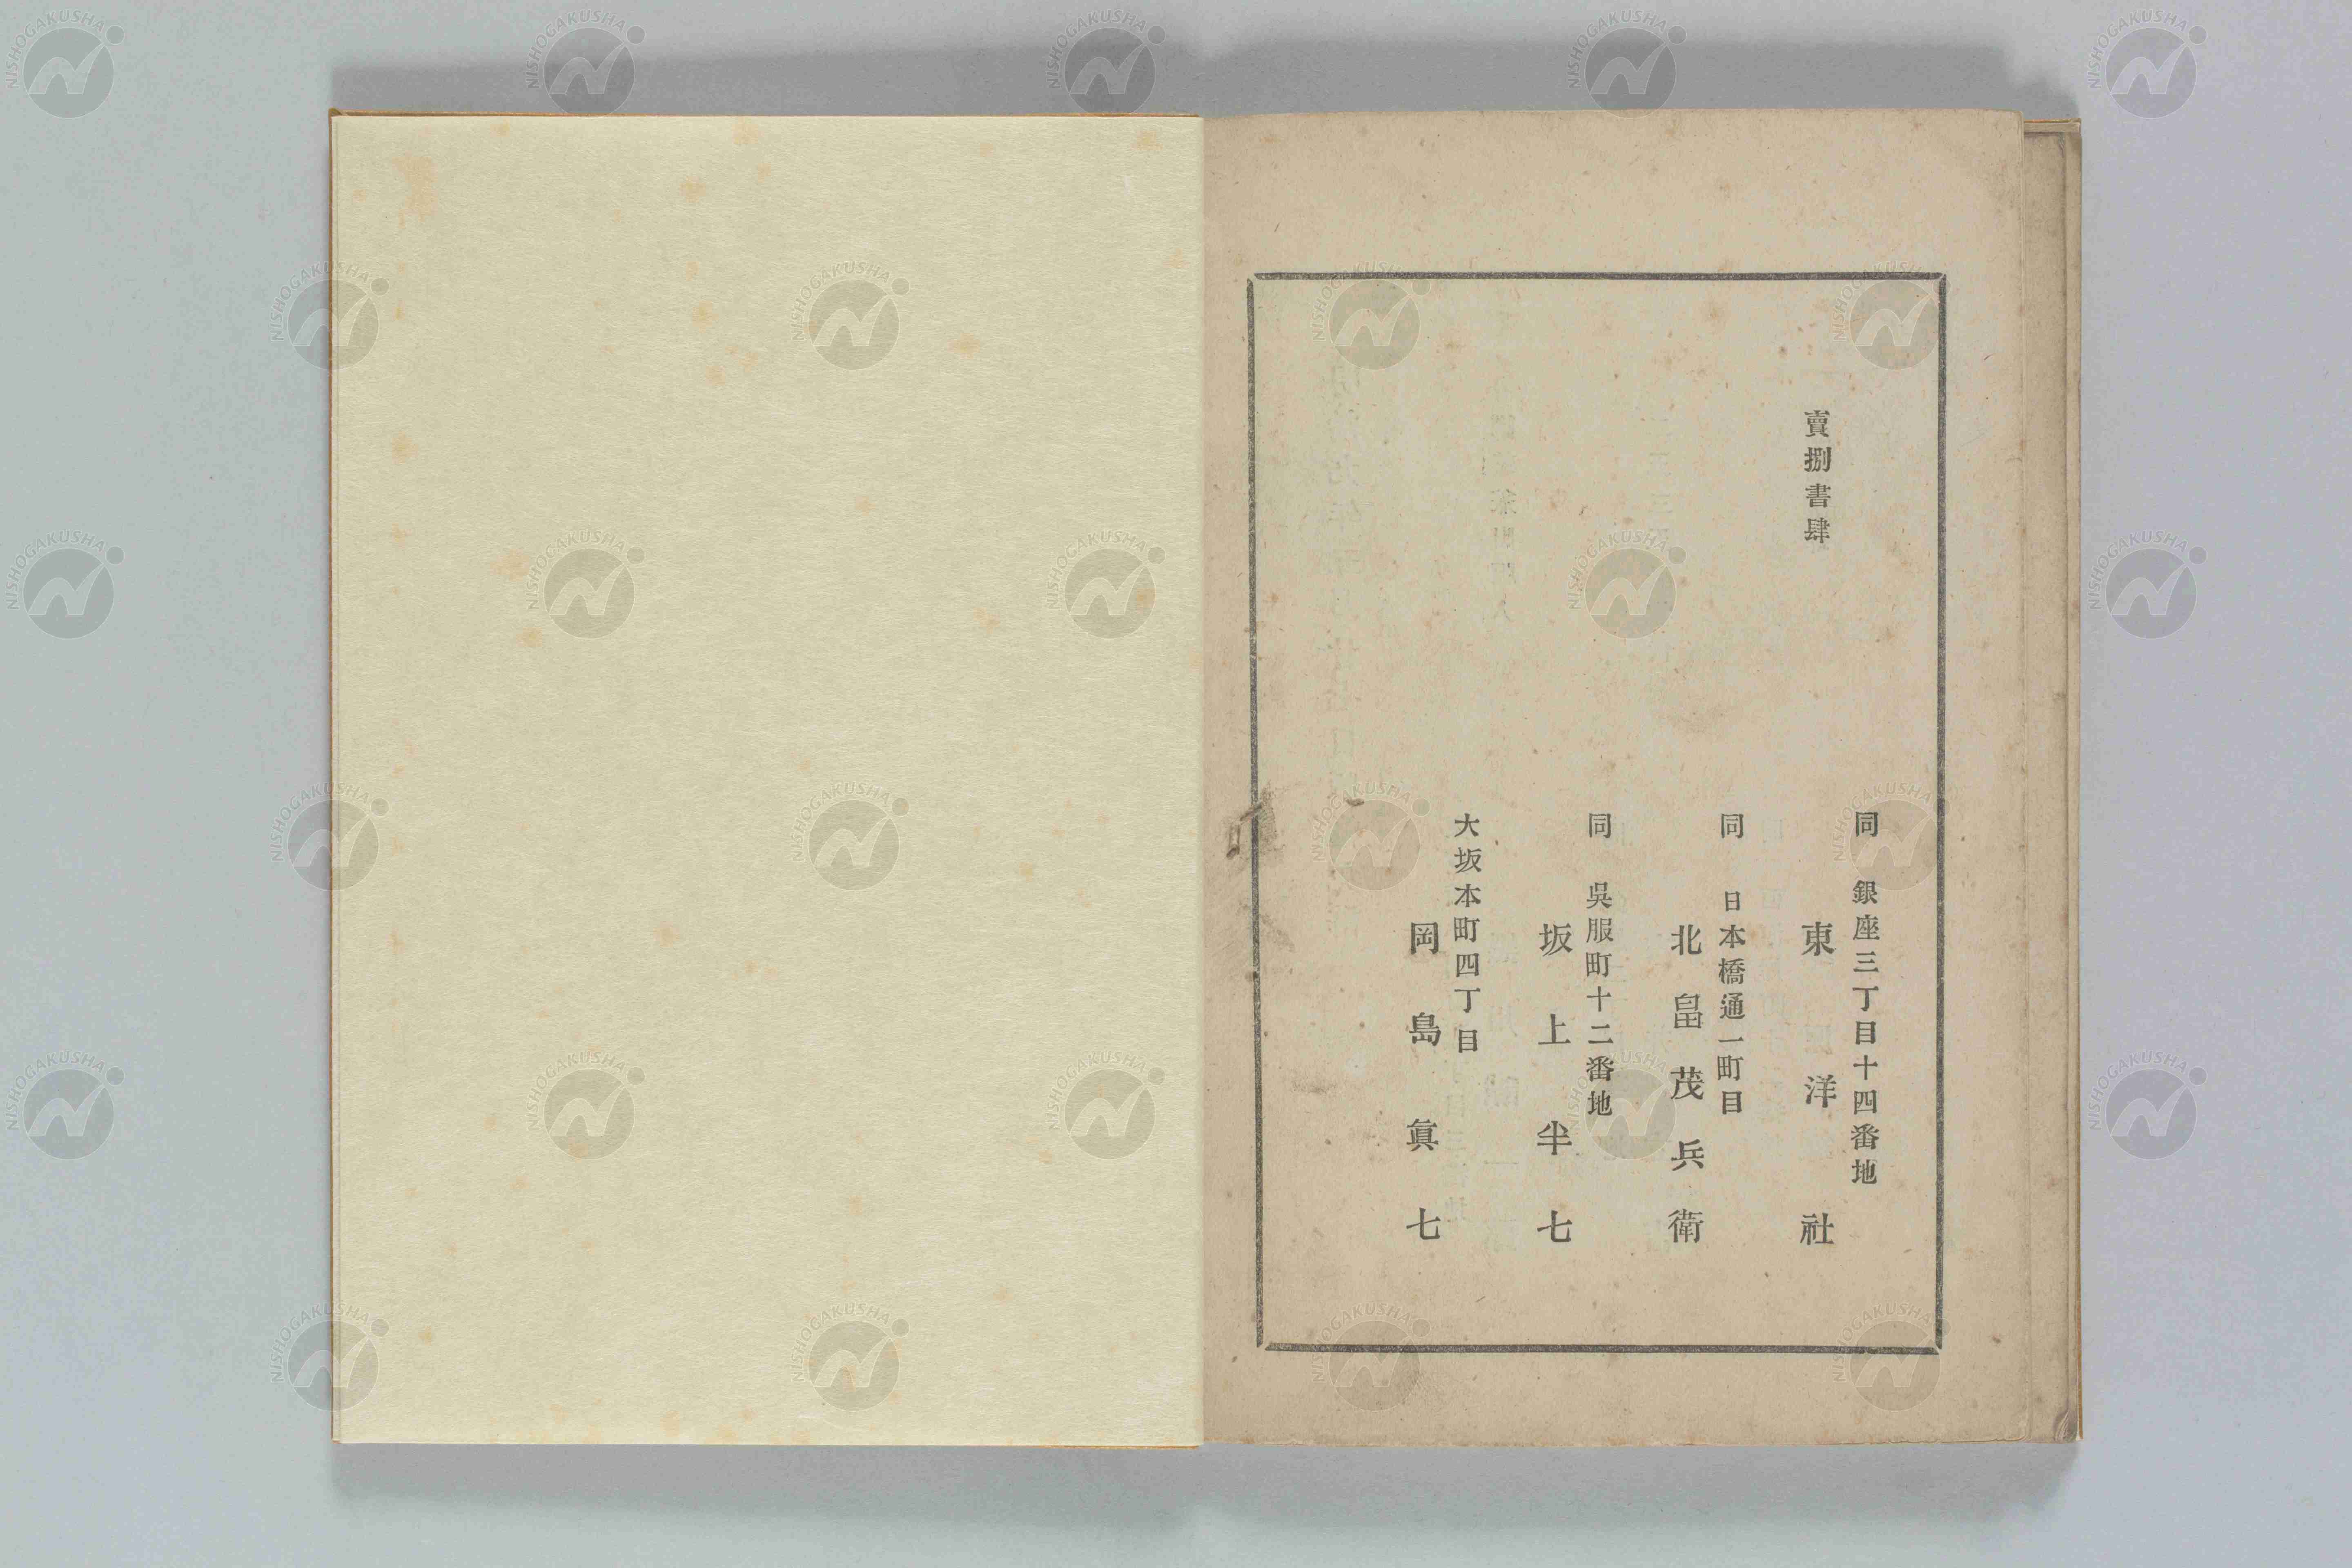 賣捌書肆
同 銀座三丁目十四番地
東洋社
同 日本橋通一町目
北畠茂兵衛
同 吳服町十二番地
坂上半七
大坂本町四丁目
岡島眞七
NISHOGAKUSHA